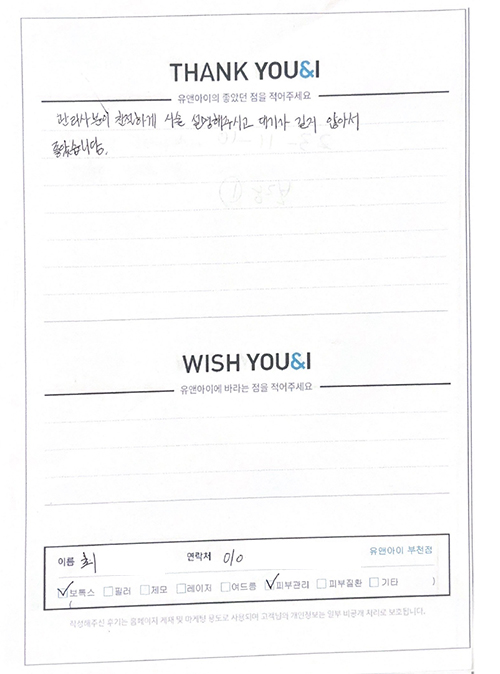 THANK YOU&I
유앤아이의 좋았던 점을 적어주세요
관리사분이 친절하게 시술 설명해주시고 대기가 길지 않아서
좋았습니다.
WISH YOU&I
유앤아이에 바라는 점을 적어주세요
이름 최 연락처 010 유앤아이 부천점
보톡스 필러 제모 레이저 여드름 피부관리 피부질환 기타 )
(
작성해주신 후기는 홈페이지 게재 및 마케팅 용도로 사용되며 고객님의 개인정보는 일부 비공개 처리로 보호됩니다.